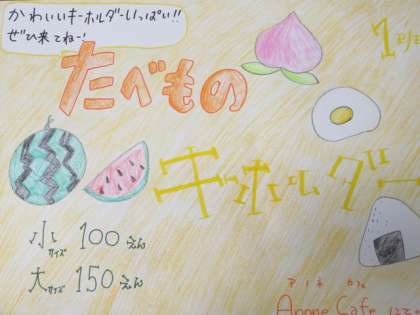 かわいいキーホルダーいっぱい!!
ぜひ来てねー!
たべもの
キーホルダー
小サイズ 100えん
大サイズ 150えん
アノネ カフェ
Anone Cafe にて